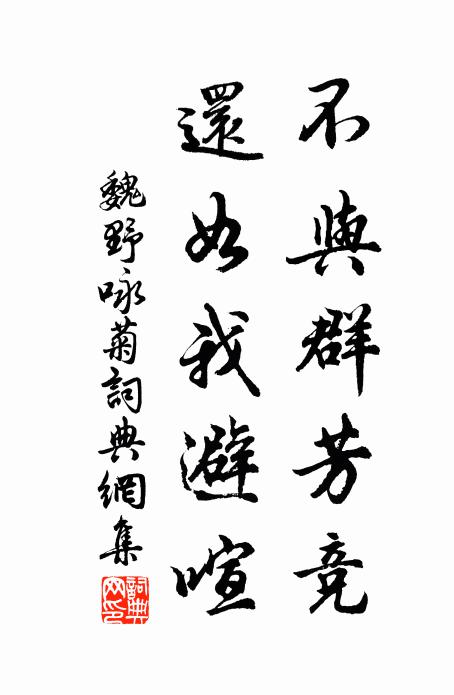 不與群芳竞
還如我避喧
魏野咏菊詞典網集
詞典网印